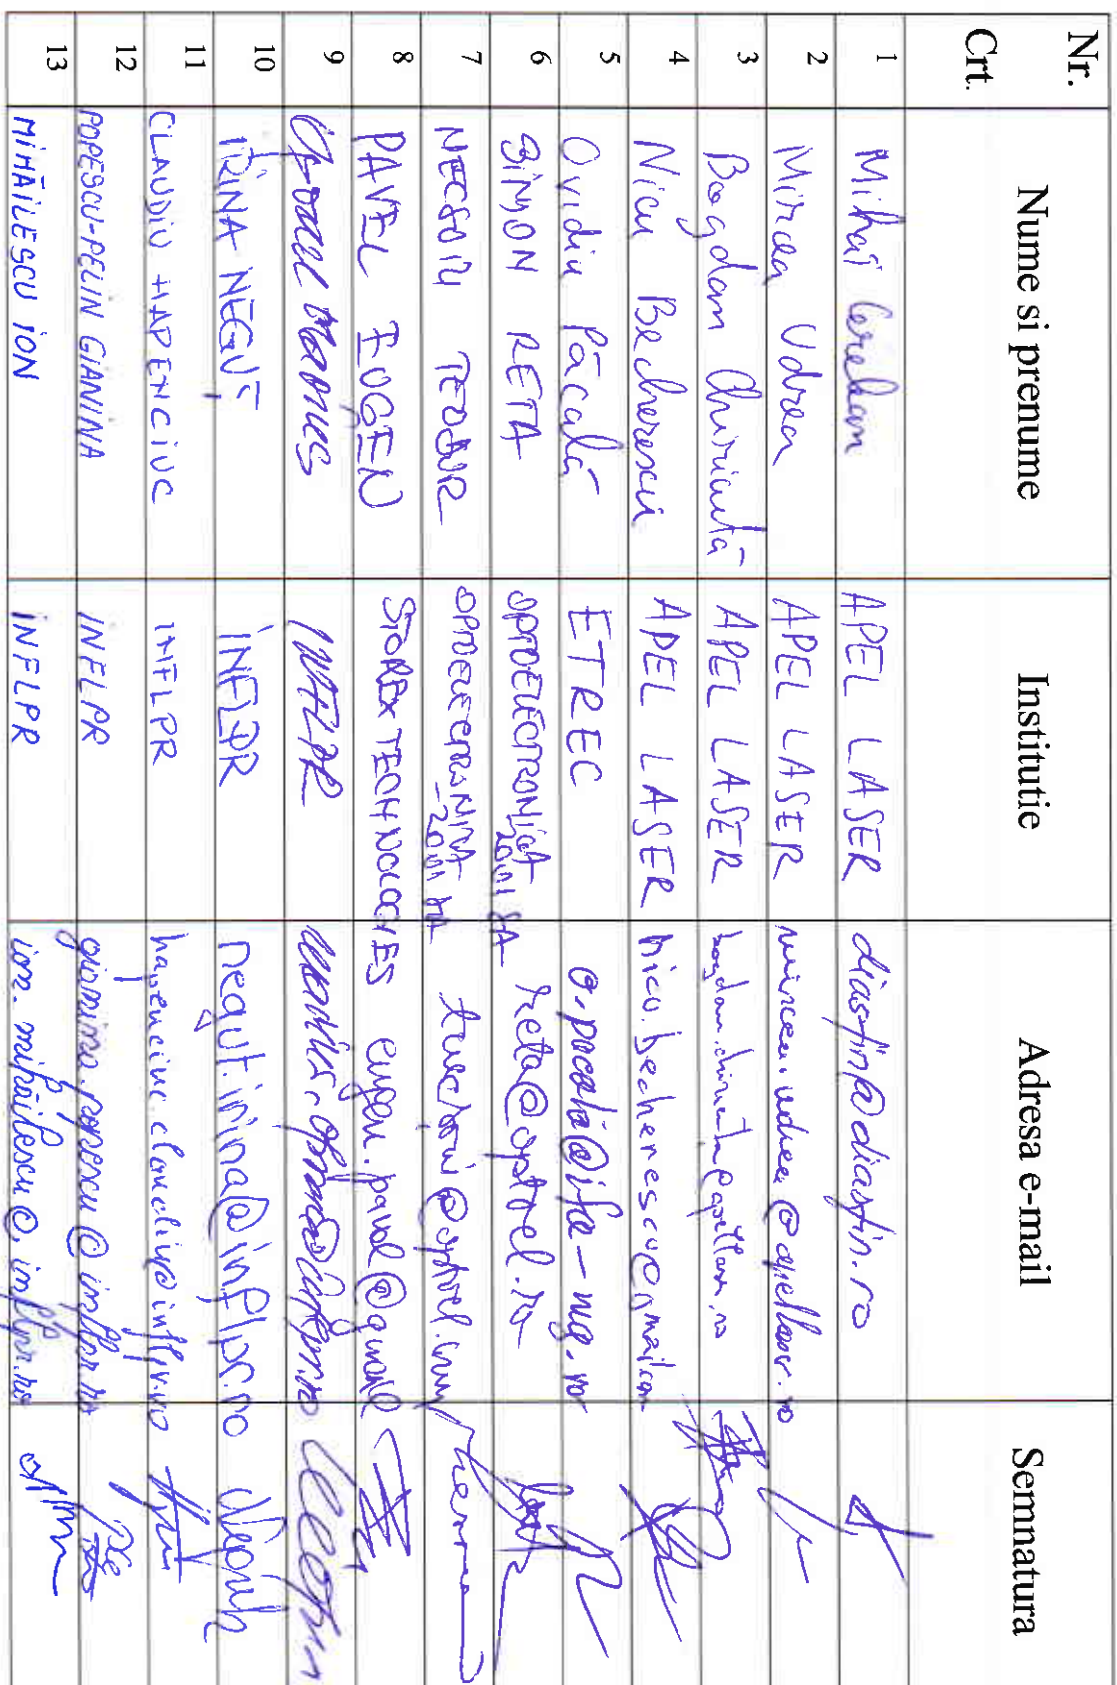 Nr. Crt. Nume si prenume Institutie Adresa e-mail Semnatura
1 Mihai APEL LASER diasfin@diasfin.ro
2 Mircea Udrea APEL LASER mircea.udrea@apellaser.ro
3 Bogdan Chiricuta APEL LASER
4 Nicu Becherescu APEL LASER nicu.becherescu@gmail.com
5 Ovidiu Păcală ETREC o.pacala@ifa-mg.ro
6 SIMON RETA OPTOELECTRONICA 2001 SA reta@optoel.ro
7 NECSOIU TEODOR OPTOELECTRONICA 2001 SA
8 PAVEL EUGEN STOREX TECHNOLOGIES eugen.pavel@gmail
9 INFLPR
10 IRINA NEGUȚ INFLPR negut.irina@inflpr.ro
11 CLAUDIU HAPENCIUC INFLPR hapenciuc.claudiu@inflpr.ro
12 POPESCU-PELIN GIANINA INFLPR gianina.popescu@inflpr.ro
13 MIHĂILESCU ION INFLPR ion.mihăilescu@inflpr.ro